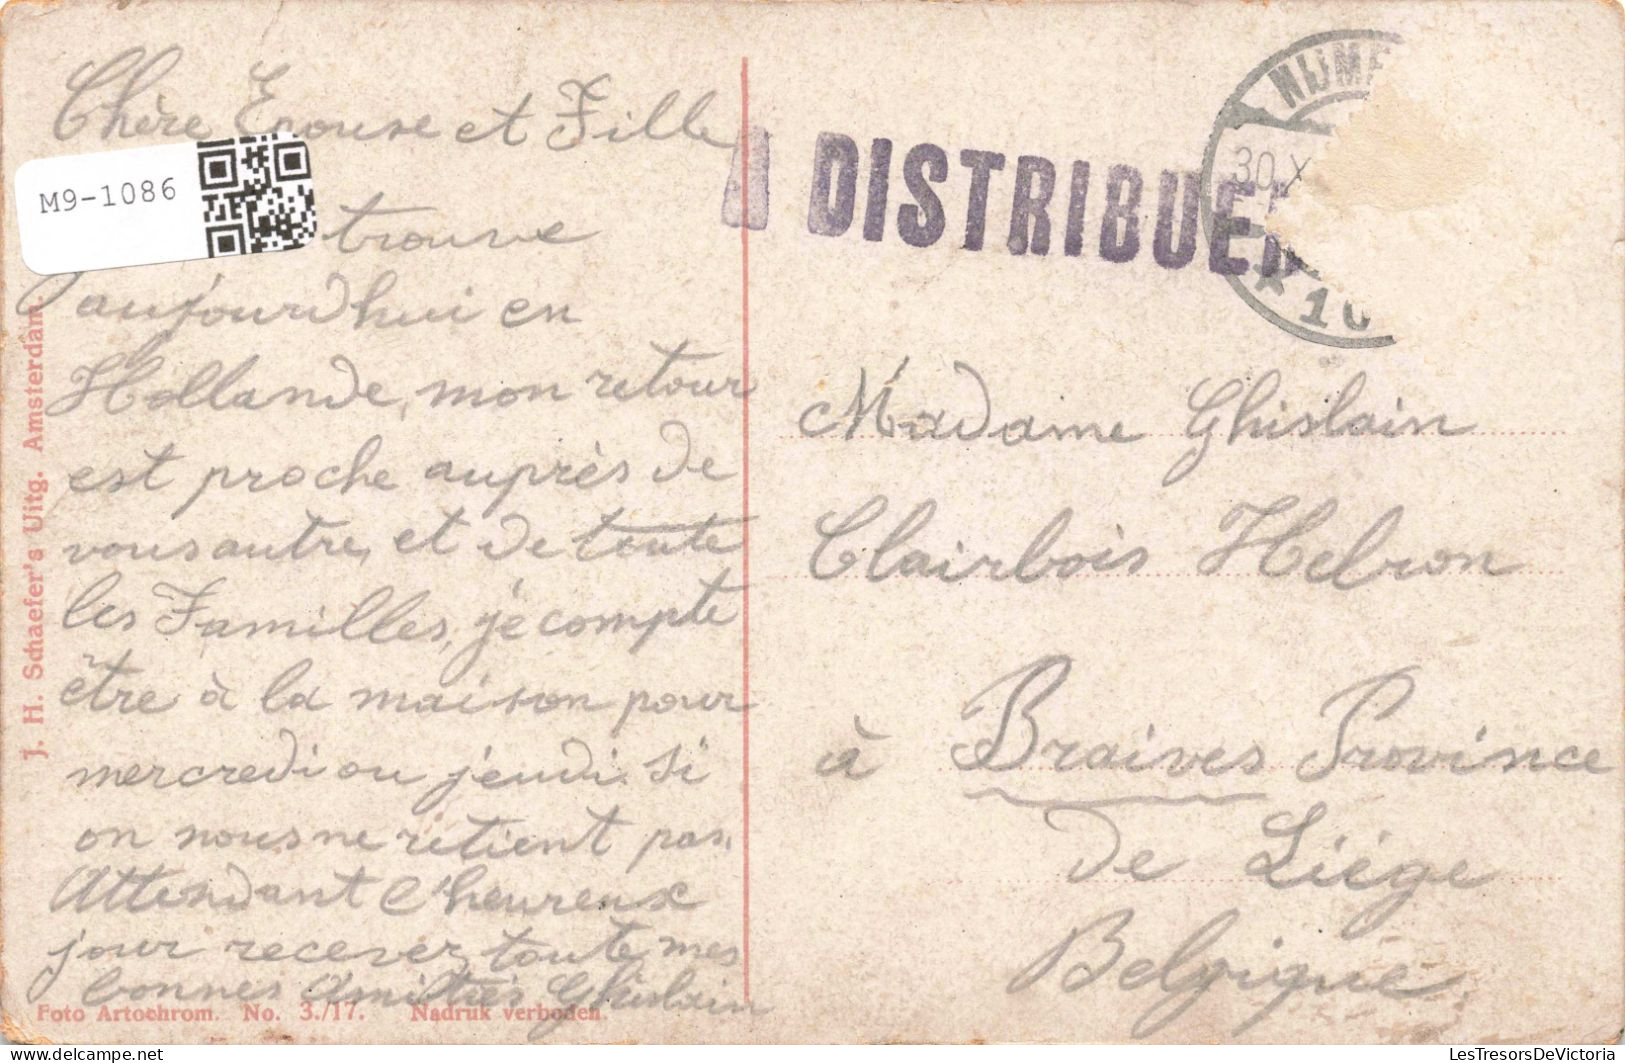 Chère Epouse et Fille
trouve
aujourd'hui en
Hollande, mon retour
est proche auprès de
vous autre, et de toute
les Familles, je compte
être à la maison pour
mercredi ou jeudi. Si
on nous ne retient pas.
Attendant l'heureux
jour recevez toute mes
bonnes amitiés Ghislain
M9-1086
J. H. Schaefer's Uitg. Amsterdam.
Foto Artochrom. No. 3./17. Nadruk verboden
A DISTRIBUER
NIJME
30.X
10
Madame Ghislain
Clairbois Hebron
à Braives Province
de Liége
Belgique.
LesTresorsDeVictoria-delcampe.net